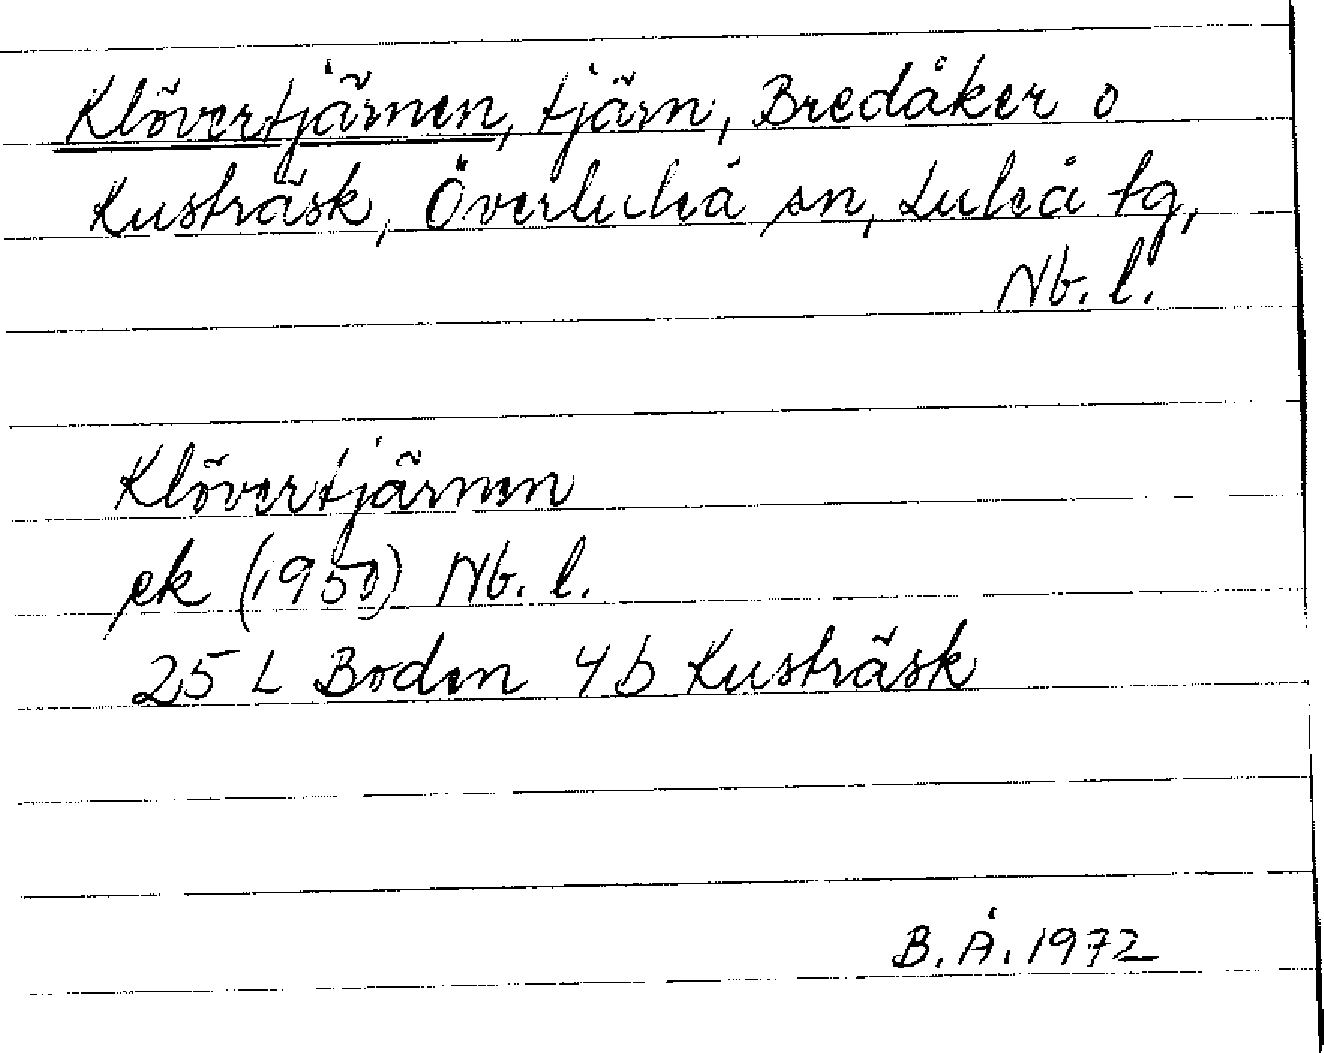 Klövertjärnen, tjärn, Bredåker o
Kusträsk, Överluleå sn, Luleå tg,
Nb. l.
Klövertjärnen
ek (1950) Nb. l.
25 L Boden 4b Kusträsk
B. Å. 1972